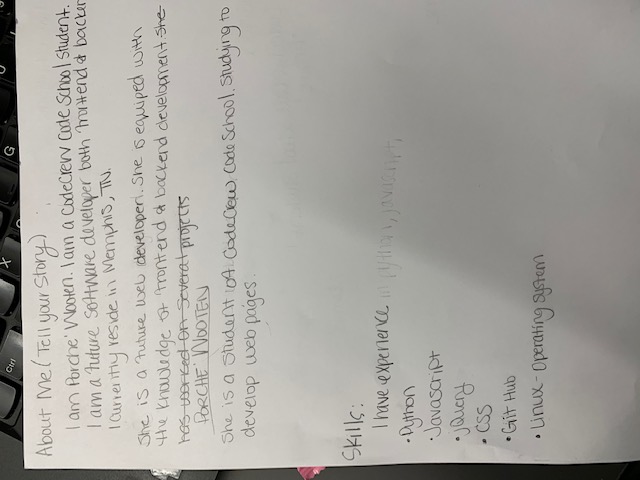 About Me (Tell your Story)
I am Porche' Wooten. I am a CodeCrew Code School Student.
I am a future Software developer both frontend & backen
I currently reside in Memphis, TN.
She is a future web developer. She is equiped with
the knowledge of frontend & backend development. She
has worked on several projects
PORCHE' WOOTEN
She is a student of CodeCrew Code School. Studying to
develop web pages.
Skills:
I have experience in python, javascript,
• Python
• Javascript
• jQuery
• CSS
• Git Hub
• Linux - Operating System
Ctrl
X